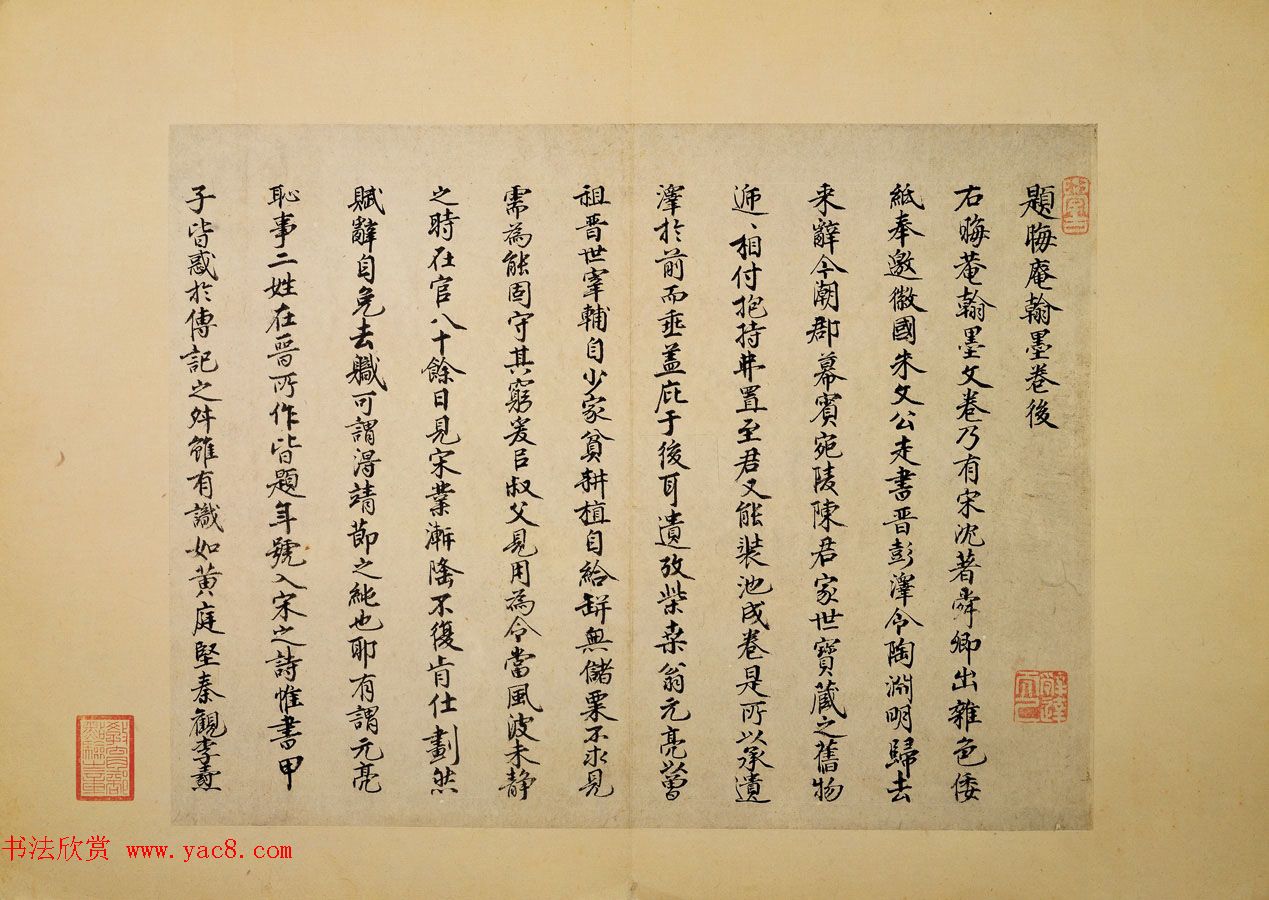 題晦庵翰墨卷後
右晦菴翰墨文卷乃有宋沈著舜卿出雜色倭
紙奉邀徽國朱文公走書晉彭澤令陶淵明歸去
来辭今潮郡幕賓宛陵陳君家世寶藏之舊物
逓、相付抱持毋置至君又能裝池成卷是所以承遺
澤於前而垂蓋庇于後耳遺攷柴桒翁元亮以曾
祖晉世宰輔自少家貧耕植自給缾無儲粟不求見
需為能固守其窮爰以叔父見用為令當風波未静
之時在官八十餘日見宋業漸隆不復肯仕劃然
賦辭自免去職可謂得靖節之純也耶有謂元亮
恥事二姓在晉所作皆題年號入宋之詩惟書甲
子皆惑於傳記之舛雖有識如黄庭堅秦觀李燾
书法欣赏 www.yac8.com